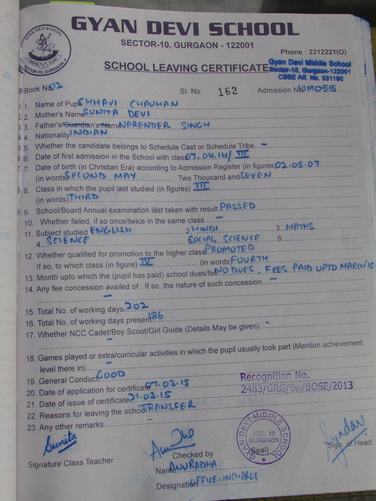 GYAN DEVI SCHOOL
SECTOR-10, GURGAON - 122001
Phone : 2212221(O)
SCHOOL LEAVING CERTIFICATE
Gyan Devi Middle School
Sector-10, Gurgaon-122001
CBSE Aff. No. 531190
Book No. 02 Sl. No. 162 Admission No. ADM0515
1. Name of Pupil CHHAVI CHAUHAN
2. Mother's Name SUNITA DEVI
3. Father's/Guardian's Name NARENDER SINGH
4. Nationality INDIAN
5. Whether the candidate belongs to Schedule Cast or Schedule Tribe -
6. Date of first admission in the School with class 07.04.14/ III
7. Date of birth (in Christian Era) according to Admission Register (in figures) 02.05.07
(in words) SECOND MAY Two Thousand and SEVEN
8. Class in which the pupil last studied (in figures) III
(in words) THIRD
9. School/Board Annual examination last taken with result PASSED
10. Whether failed, if so once/twice in the same class -
11. Subject studied ENGLISH 2. HINDI 3. MATHS
4. SCIENCE SOCIAL SCIENCE 6
12. Whether qualified for promotion to the higher class PROMOTED
If so, to which class (in figure) IV (in words) FOURTH
13. Month upto which the (pupil has paid) school dues/fee NO DUES, FEES PAID UPTO MARCH'15
14. Any fee concession availed of : If so, the nature of such concession -
15. Total No. of working days 202
16. Total No. of working present 186
17. Whether NCC Cadet/Boy Scout/Girl Guide (Details May be given) -
18. Games played or extra/curricular activities in which the pupil usually took part (Mention achievement
level there in)
19. General Conduct GOOD
20. Date of application for certificate 07.03.15
21. Date of issue of certificate 21.03.15
22. Reasons for leaving the school TRANSFER
23. Any other remarks
Recognition No.
2483/GRG/Sei/BOSE/2013
GYAN DEVI MIDDLE SCHOOL
SEC. 10
GURGAON
Sunita
Signature Class Teacher
Checked by
Name ANURADHA
Designation OFFICE-INCHARGE
(Seal)
Sign of Head